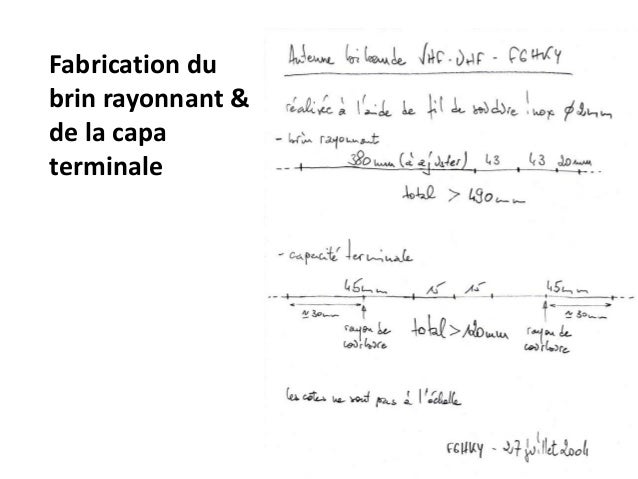 Fabrication du
brin rayonnant &
de la capa
terminale
Antenne bibande VHF-UHF - F6HKY
réalisée à l'aide de fil de soudure inox Ø 2mm
- brin rayonnant
380mm (à ajuster) 43 43 20mm
total > 490mm
- capacité terminale
45mm 15 15 45mm
≈ 30mm ≈ 30mm
rayon de courbure total > 120mm rayon de courbure
les côtes ne sont pas à l'échelle
F6HKY - 27 juillet 2004